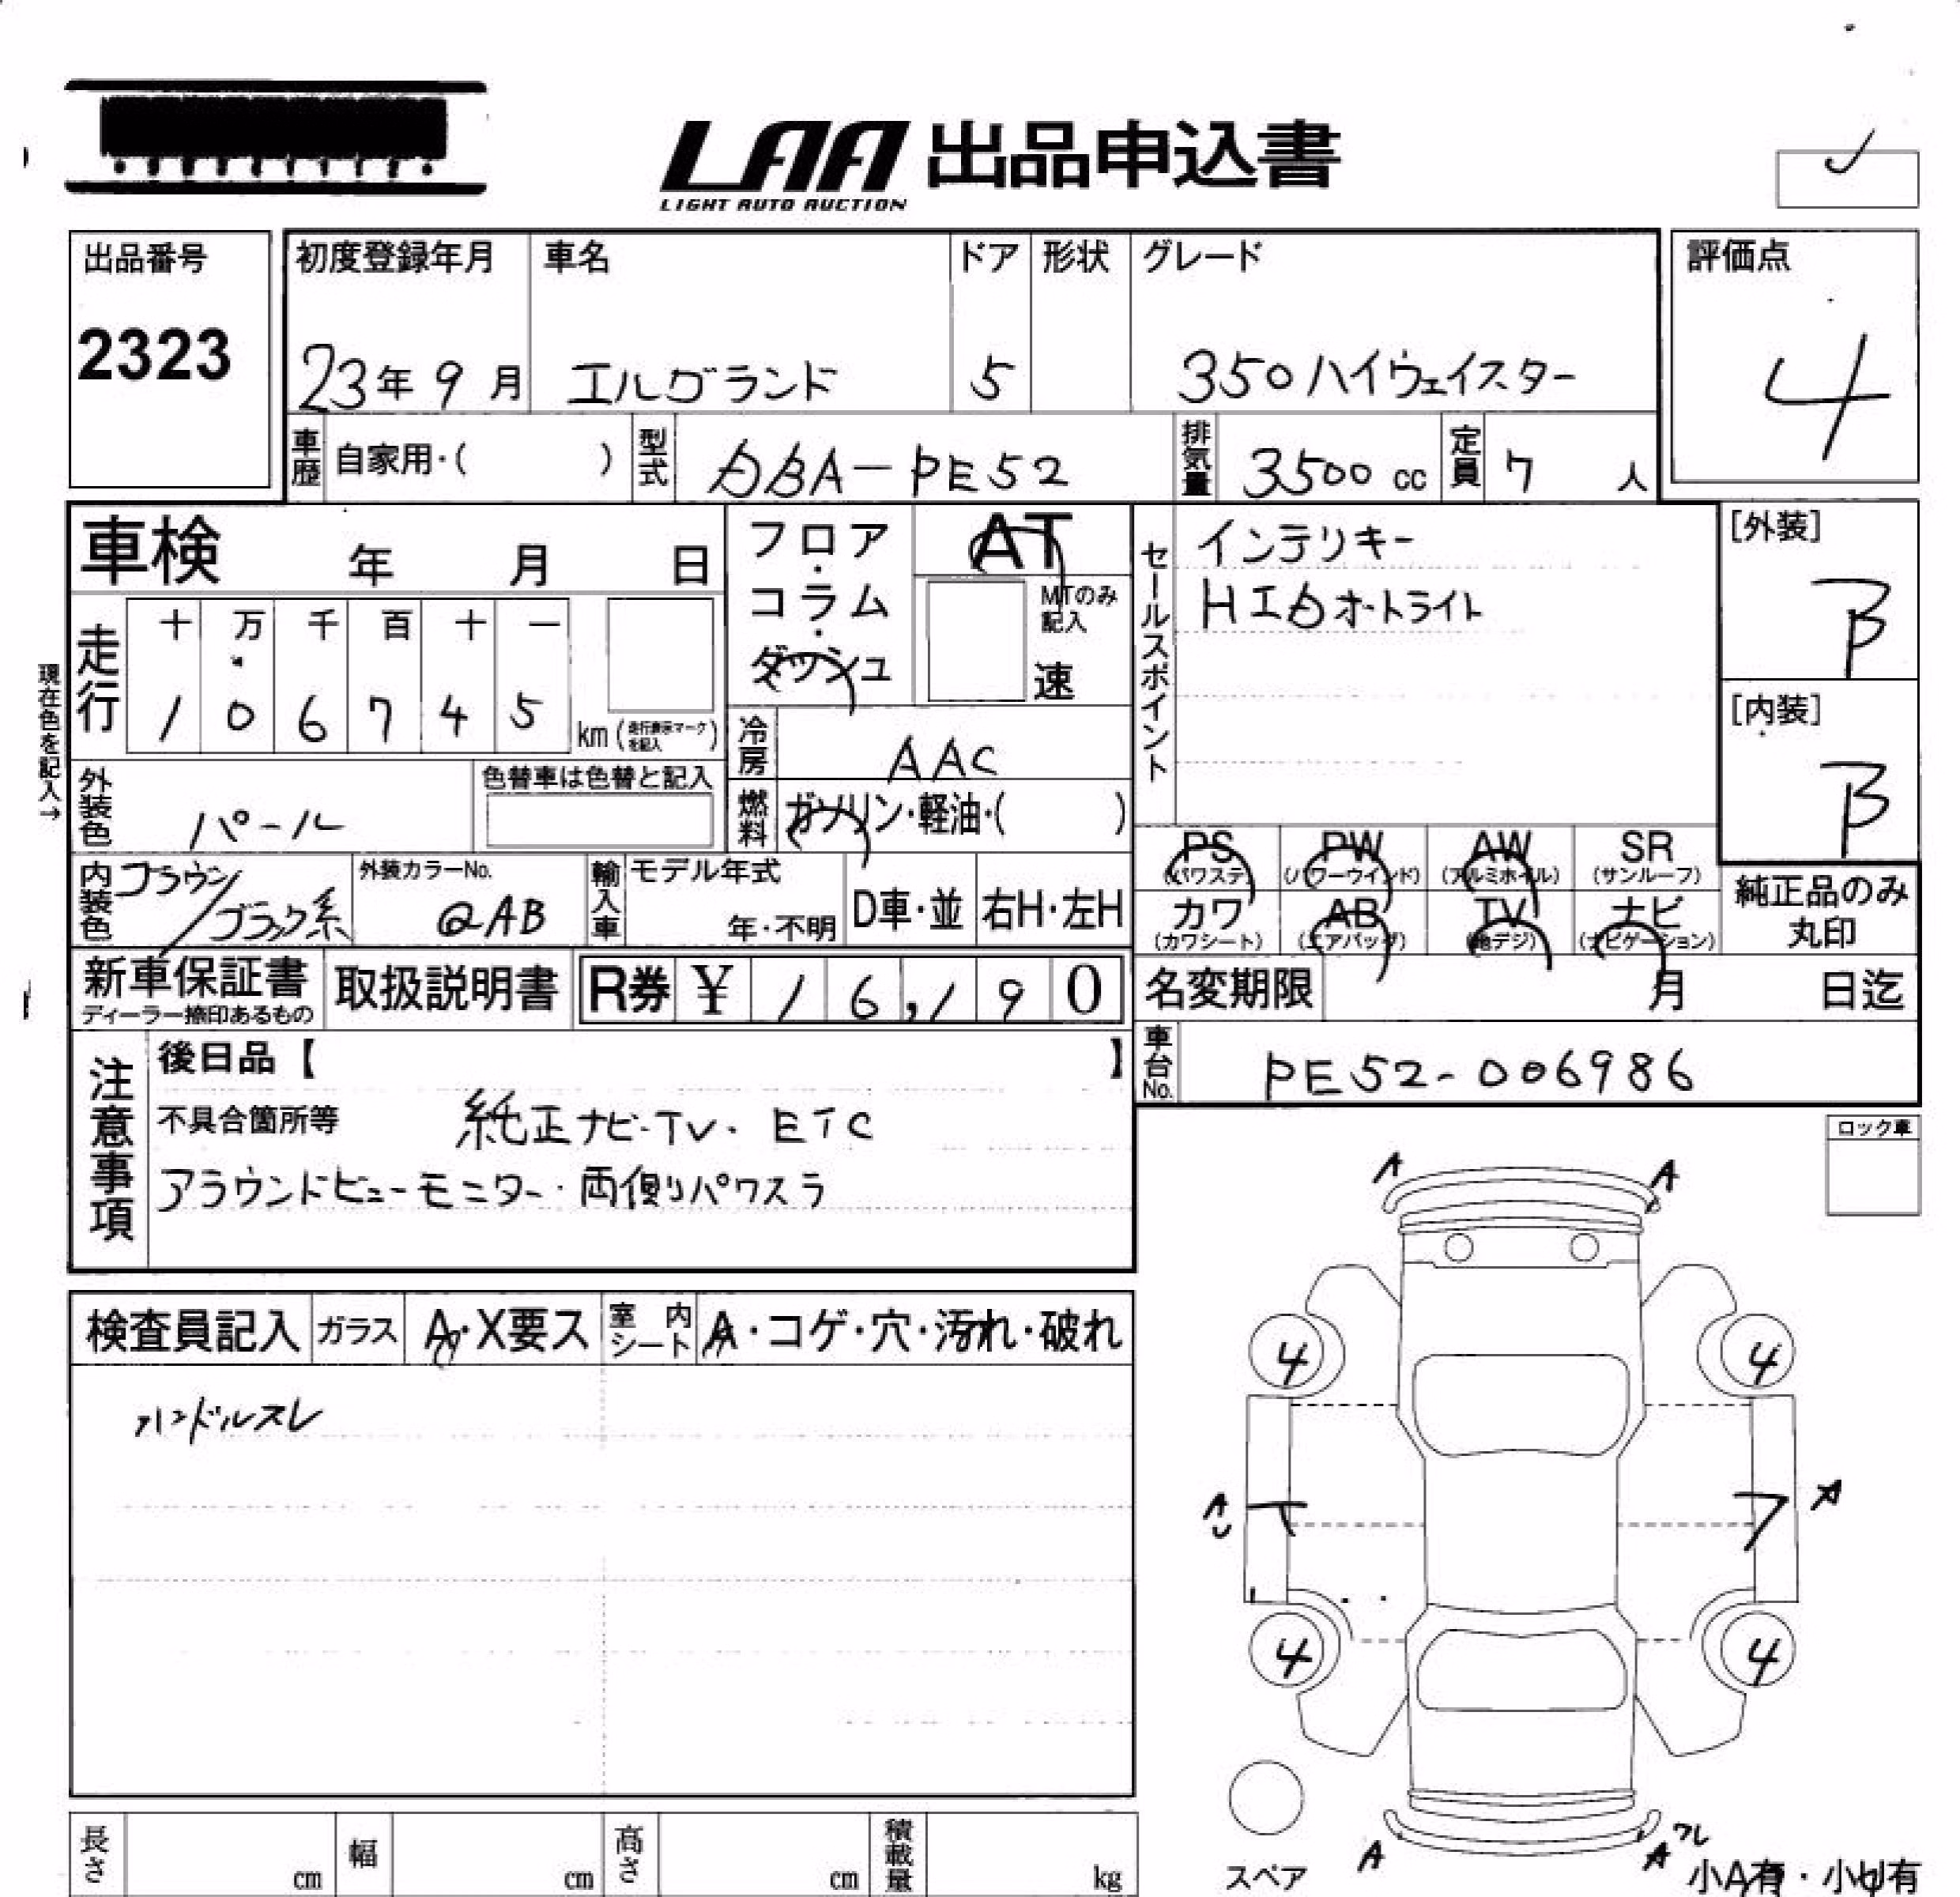 LAA 出品申込書
LIGHT AUTO AUCTION
出品番号
2323
初度登録年月
23年 9月
車名
エルグランド
ドア
5
形状
グレード
350ハイウェイスター
評価点
4
車歴
自家用・( )
型式
DBA-PE52
排気量
3500 cc
定員
7 人
車検 年 月 日
フロア・コラム・ダッシュ
AT
MTのみ記入
速
セールスポイント
インテリキー
HID オートライト
[外装]
B
[内装]
B
現在色を記入→
走行
十 万 千 百 十 一
1 0 6 7 4 5
km (走行表示マークを記入)
冷房
AAC
燃料
ガソリン・軽油・( )
外装色
パール
色替車は色替と記入
内装色
ブラウン/ブラック系
外装カラーNo.
QAB
輸入車
モデル年式
年・不明
D車・並
右H・左H
PS (パワステ)
PW (パワーウインド)
AW (アルミホイル)
SR (サンルーフ)
カワ (カワシート)
AB (エアバッグ)
TV (地デジ)
ナビ (ナビゲーション)
純正品のみ丸印
新車保証書
ディーラー捺印あるもの
取扱説明書
R券 ¥ 16,190
名変期限 月 日迄
車台No.
PE52-006986
注意事項
後日品【 】
不具合箇所等 純正ナビ・TV・ETC
アラウンドビューモニター・両側パワスラ
ロック車
検査員記入
ガラス
A・X要ス
室内シート
A・コゲ・穴・汚れ・破れ
ハンドルスレ
A A
4 4
A A
4 4
A A
スペア
小A有・小U有
長さ cm
幅 cm
高さ cm
積載量 kg